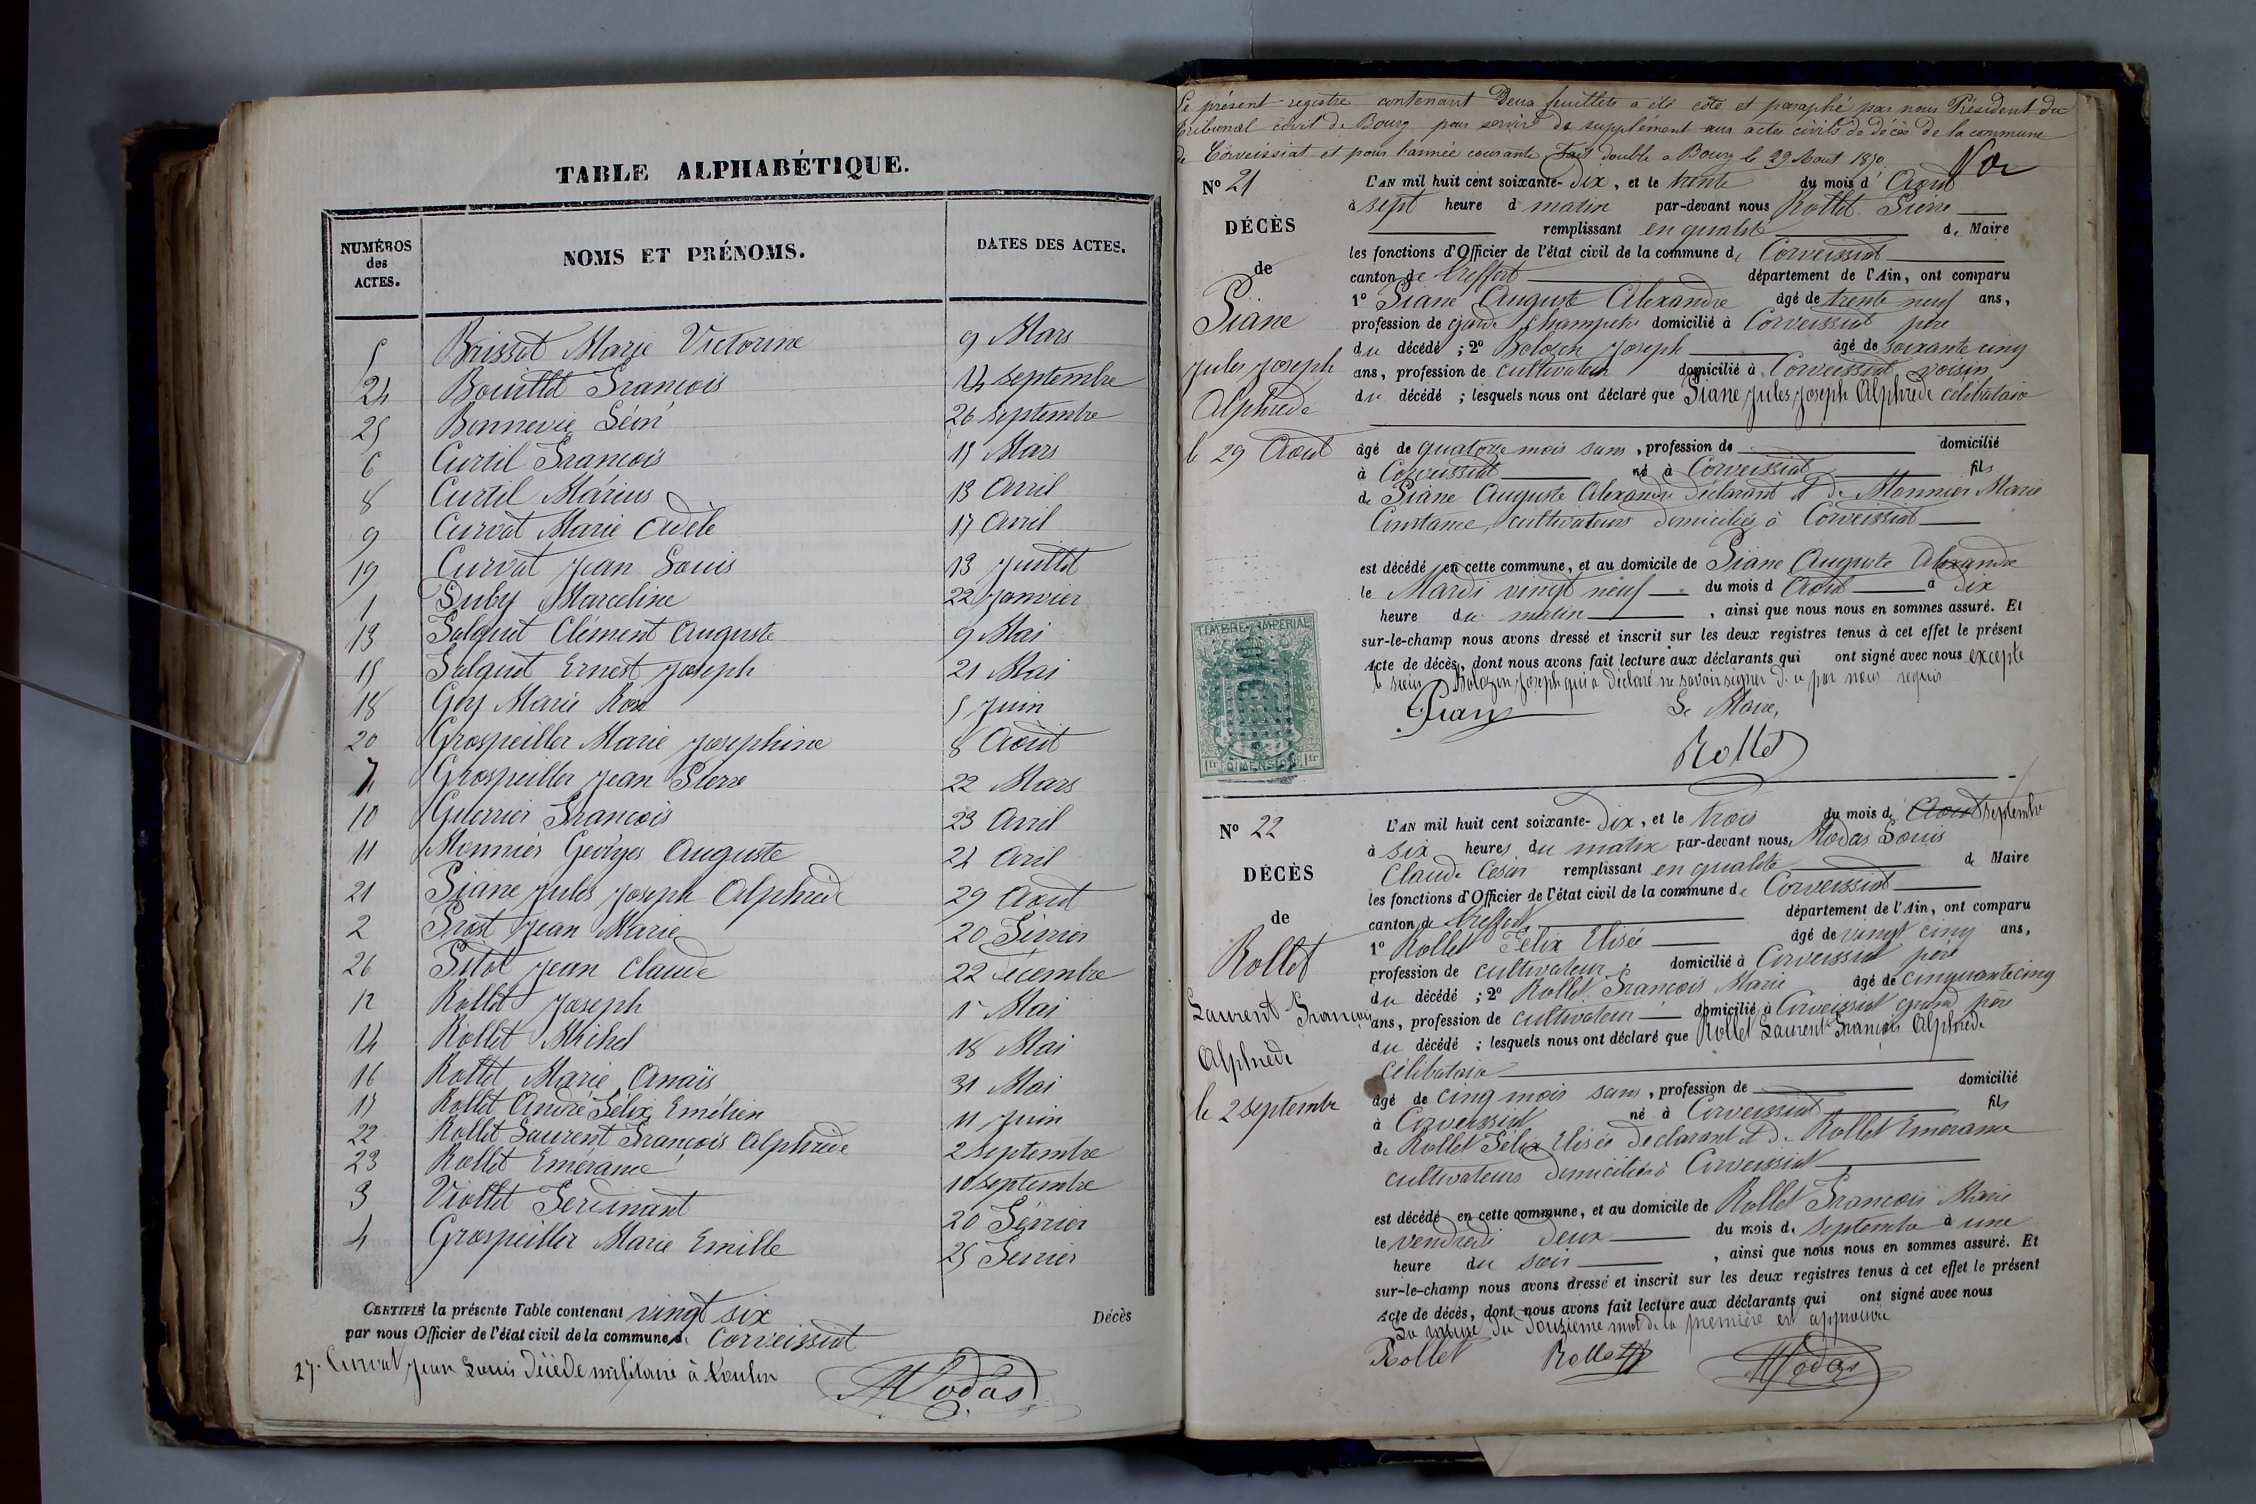 TABLE ALPHABÉTIQUE.
NUMÉROS des ACTES. NOMS ET PRÉNOMS. DATES DES ACTES.
5 Brisset Marie Victorine 9 Mars
24 Bouillet François 14 septembre
25 Bonnevie Léon 26 septembre
6 Curtil François 15 Mars
8 Curtil Marius 13 Avril
9 Curvat Marie Adèle 17 Avril
19 Curvat Jean Louis 13 Juillet
1 Duby Marceline 22 Janvier
13 Falquet Clément Auguste 9 Mai
15 Falquet Ernest Joseph 21 Mai
18 Goy Marie Rose 5 Juin
20 Grospeiller Marie Josephine 8 Août
7 Grospeiller Jean Pierre 22 Mars
10 Guerrier François 23 Avril
11 Monnier Georges Auguste 24 Avril
21 Piane Jules Joseph Alphrède 29 Aout
2 Prost Jean Marie 20 Février
26 Pitot Jean Claude 22 Decembre
12 Rollet Joseph 5 Mai
14 Rollet Michel 18 Mai
16 Rollet Marie Anaïs 31 Mai
17 Rollet André Félix Emélien 11 Juin
22 Rollet Laurent François Alphrède 2 septembre
23 Rollet Emérance 10 septembre
3 Viollet Ferdinant 20 Février
4 Grospeiller Marie Emille 25 Fevrier
CERTIFIÉ la présente Table contenant vingt six Décès
par nous Officier de l'état civil de la commune de Corveissiat
27. Curvat Jean Louis Décédé militaire à Toulon
Modas
Le présent registre contenant Deux feuillets a été coté et paraphé par nous Président du
Tribunal civil de Bourg pour servir de supplément aux actes civils de décès de la commune
de Corveissiat et pour l'année courante Fait double a Bourg le 29 Aout 1870
N° 21
DÉCÈS
de
Piane
Jules Joseph
Alphrède
le 29 Aout
L'AN mil huit cent soixante-dix, et le trente du mois d' Aout
à sept heure d matin par-devant nous Rollet Pierre
remplissant en qualité de Maire
les fonctions d'Officier de l'état civil de la commune de Corveissiat
canton de Treffort département de l'Ain, ont comparu
1° Piane Auguste Alexandre âgé de trente neuf ans,
profession de garde champetre domicilié à Corveissiat père
du décédé ; 2° Bolozon Joseph âgé de soixante cinq
ans, profession de cultivateur domicilié à Corveissiat voisin
du décédé ; lesquels nous ont déclaré que Piane Jules Joseph Alphrède célibataire
âgé de quatorze mois sans, profession de domicilié
à Corveissiat né à Corveissiat fils
de Piane Auguste Alexandre déclarant et de Monnier Marie
Constance, cultivateurs domiciliés à Corveissiat
est décédé en cette commune, et au domicile de Piane Auguste Alexandre
le Mardi vingt neuf du mois d Aout à dix
heure du matin, ainsi que nous nous en sommes assuré. Et
sur-le-champ nous avons dressé et inscrit sur les deux registres tenus à cet effet le présent
Acte de décès, dont nous avons fait lecture aux déclarants qui ont signé avec nous excepté
le sieur Bolozon Joseph qui a déclaré ne savoir signer de ce par nous requis
Piane Le Maire,
Rollet
TIMBRE IMPERIAL
1 fr DIMENSION 1 fr
N° 22
DÉCÈS
de
Rollet
Laurent François
Alphrède
le 2 septembre
L'AN mil huit cent soixante-dix, et le trois du mois de Aout septembre
à six heures du matin par-devant nous, Modas Louis
Claude César remplissant en qualité de Maire
les fonctions d'Officier de l'état civil de la commune de Corveissiat
canton de Treffort département de l'Ain, ont comparu
1° Rollet Félix Elisée âgé de vingt cinq ans,
profession de cultivateur domicilié à Corveissiat père
du décédé ; 2° Rollet François Marie âgé de cinquante cinq
ans, profession de cultivateur domicilié à Corveissiat grand père
du décédé ; lesquels nous ont déclaré que Rollet Laurent François Alphrède
célibataire
âgé de cinq mois sans, profession de domicilié
à Corveissiat né à Corveissiat fils
de Rollet Félix Elisée declarant et de Rollet Emerance
cultivateurs domiciliés à Corveissiat
est décédé en cette commune, et au domicile de Rollet François Marie
le vendredi deux du mois de septembre à une
heure du soir, ainsi que nous nous en sommes assuré. Et
sur-le-champ nous avons dressé et inscrit sur les deux registres tenus à cet effet le présent
Acte de décès, dont nous avons fait lecture aux déclarants qui ont signé avec nous
La rature du douzieme mot de la première est approuvée
Rollet Rollet Modas